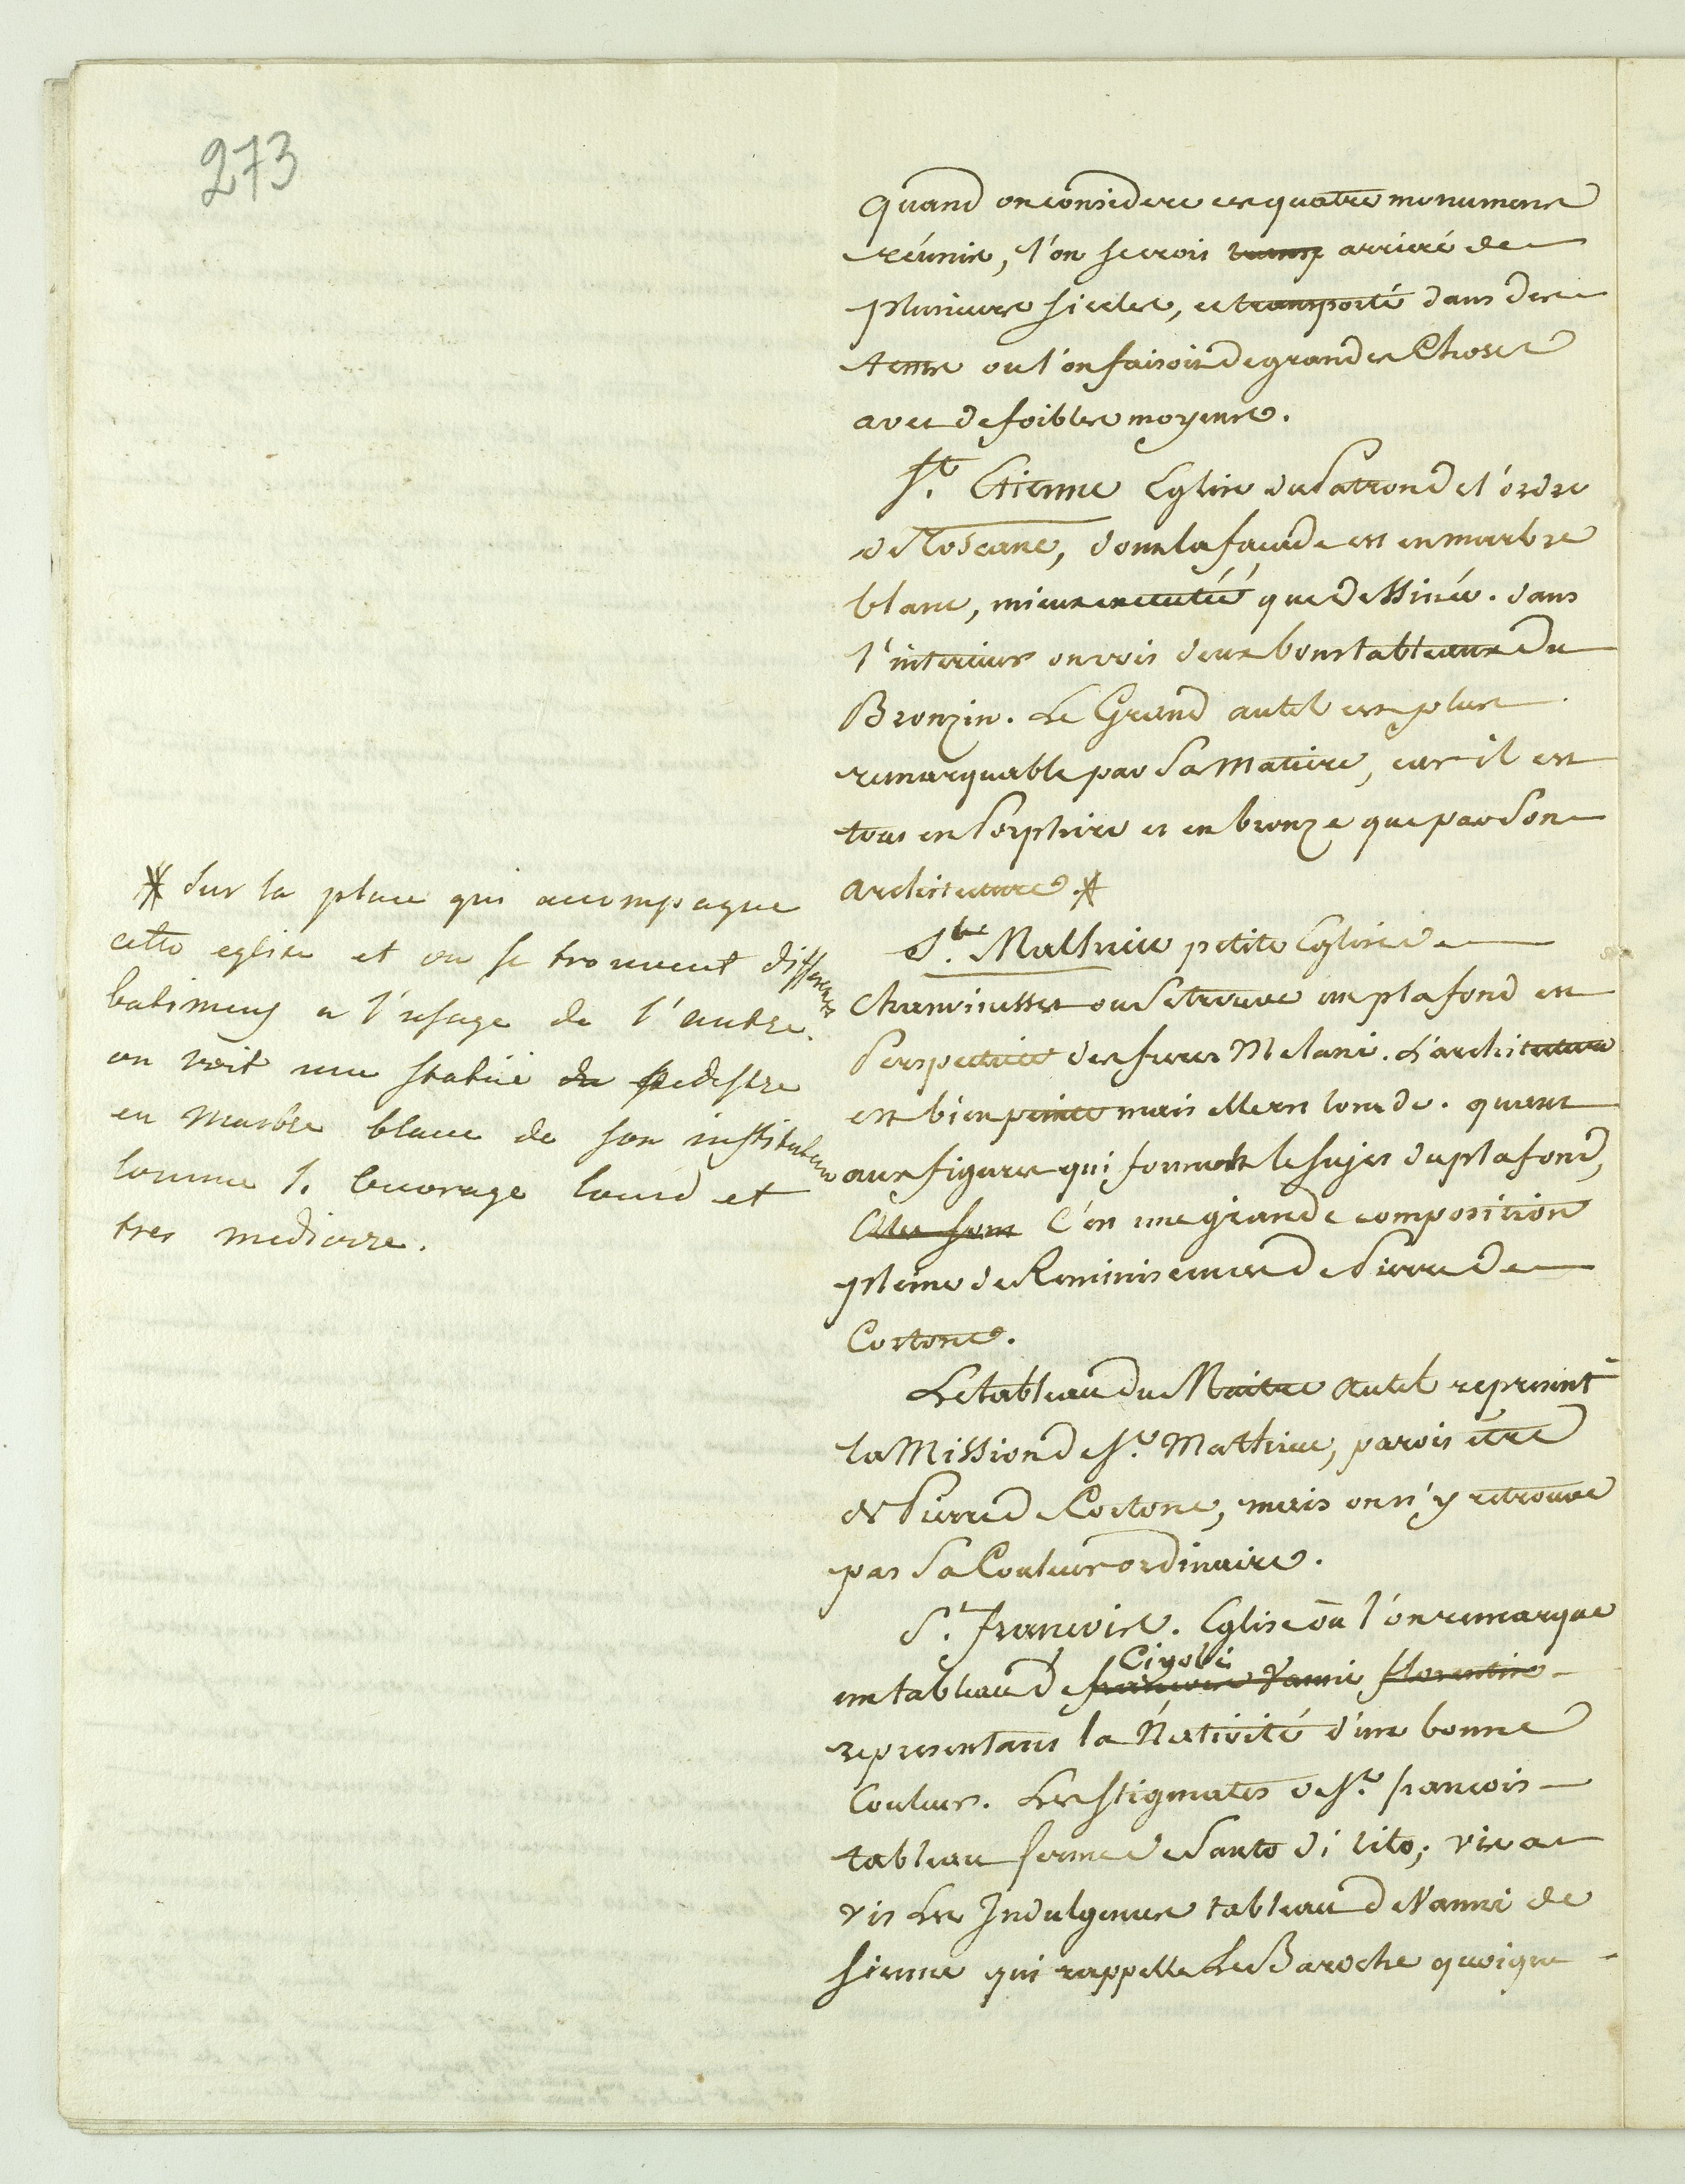 273
quand on considere ces quatre monumens
réunis, l'on se croit transp arriéré de
plusieurs siecles, et transporté dans des
tems ou l'on faisoit de grandes Choses
avec de foibles moyens.
St. Etienne Eglise du Patron de l'ordre
de Toscane, dont la façade est en marbre
blanc, mieux executée que dessinée. dans
l'interieur on voit deux bons tableaux du
Bronzin. Le Grand autel est plus
remarquable par sa matiere, car il est
tout en Porphire et en bronze que par son
architecture. *
* Sur la place qui accompagne
cette eglise et ou se trouvent differents
batimens a l'usage de l'ordre.
on voit une statüe du pedestre
en marbre blanc de son instituteur
Cosme 1. ouvrage lourd et
tres mediocre.
St. Mathieu petite Eglise de
Chanoinesses ou se trouve un plafond en
Perspective des freres Melani. L'architecture
est bien peinte mais elle est lourde. quant
aux figures qui forment le sujet du plafond,
elles sont C'est une grande composition
pleine de Reminiscences de Pierre de
Cortone.
Le tableau du Maitre autel represent
la Mission de St. Mathieu, paroit être
de Pierre de Cortone, mais on n'y retrouve
pas sa Couleur ordinaire.
St. François. Eglise où l'on remarque
un tableau de françois Vanni florentin Cigoli
representant la Nativité d'une bonne
Couleur. Les stigmates de St. françois
tableau ferme de Santo di tito; vis a
vis Les Indulgences tableau de Vanni de
sienne qui rappelle Le Baroche quoique